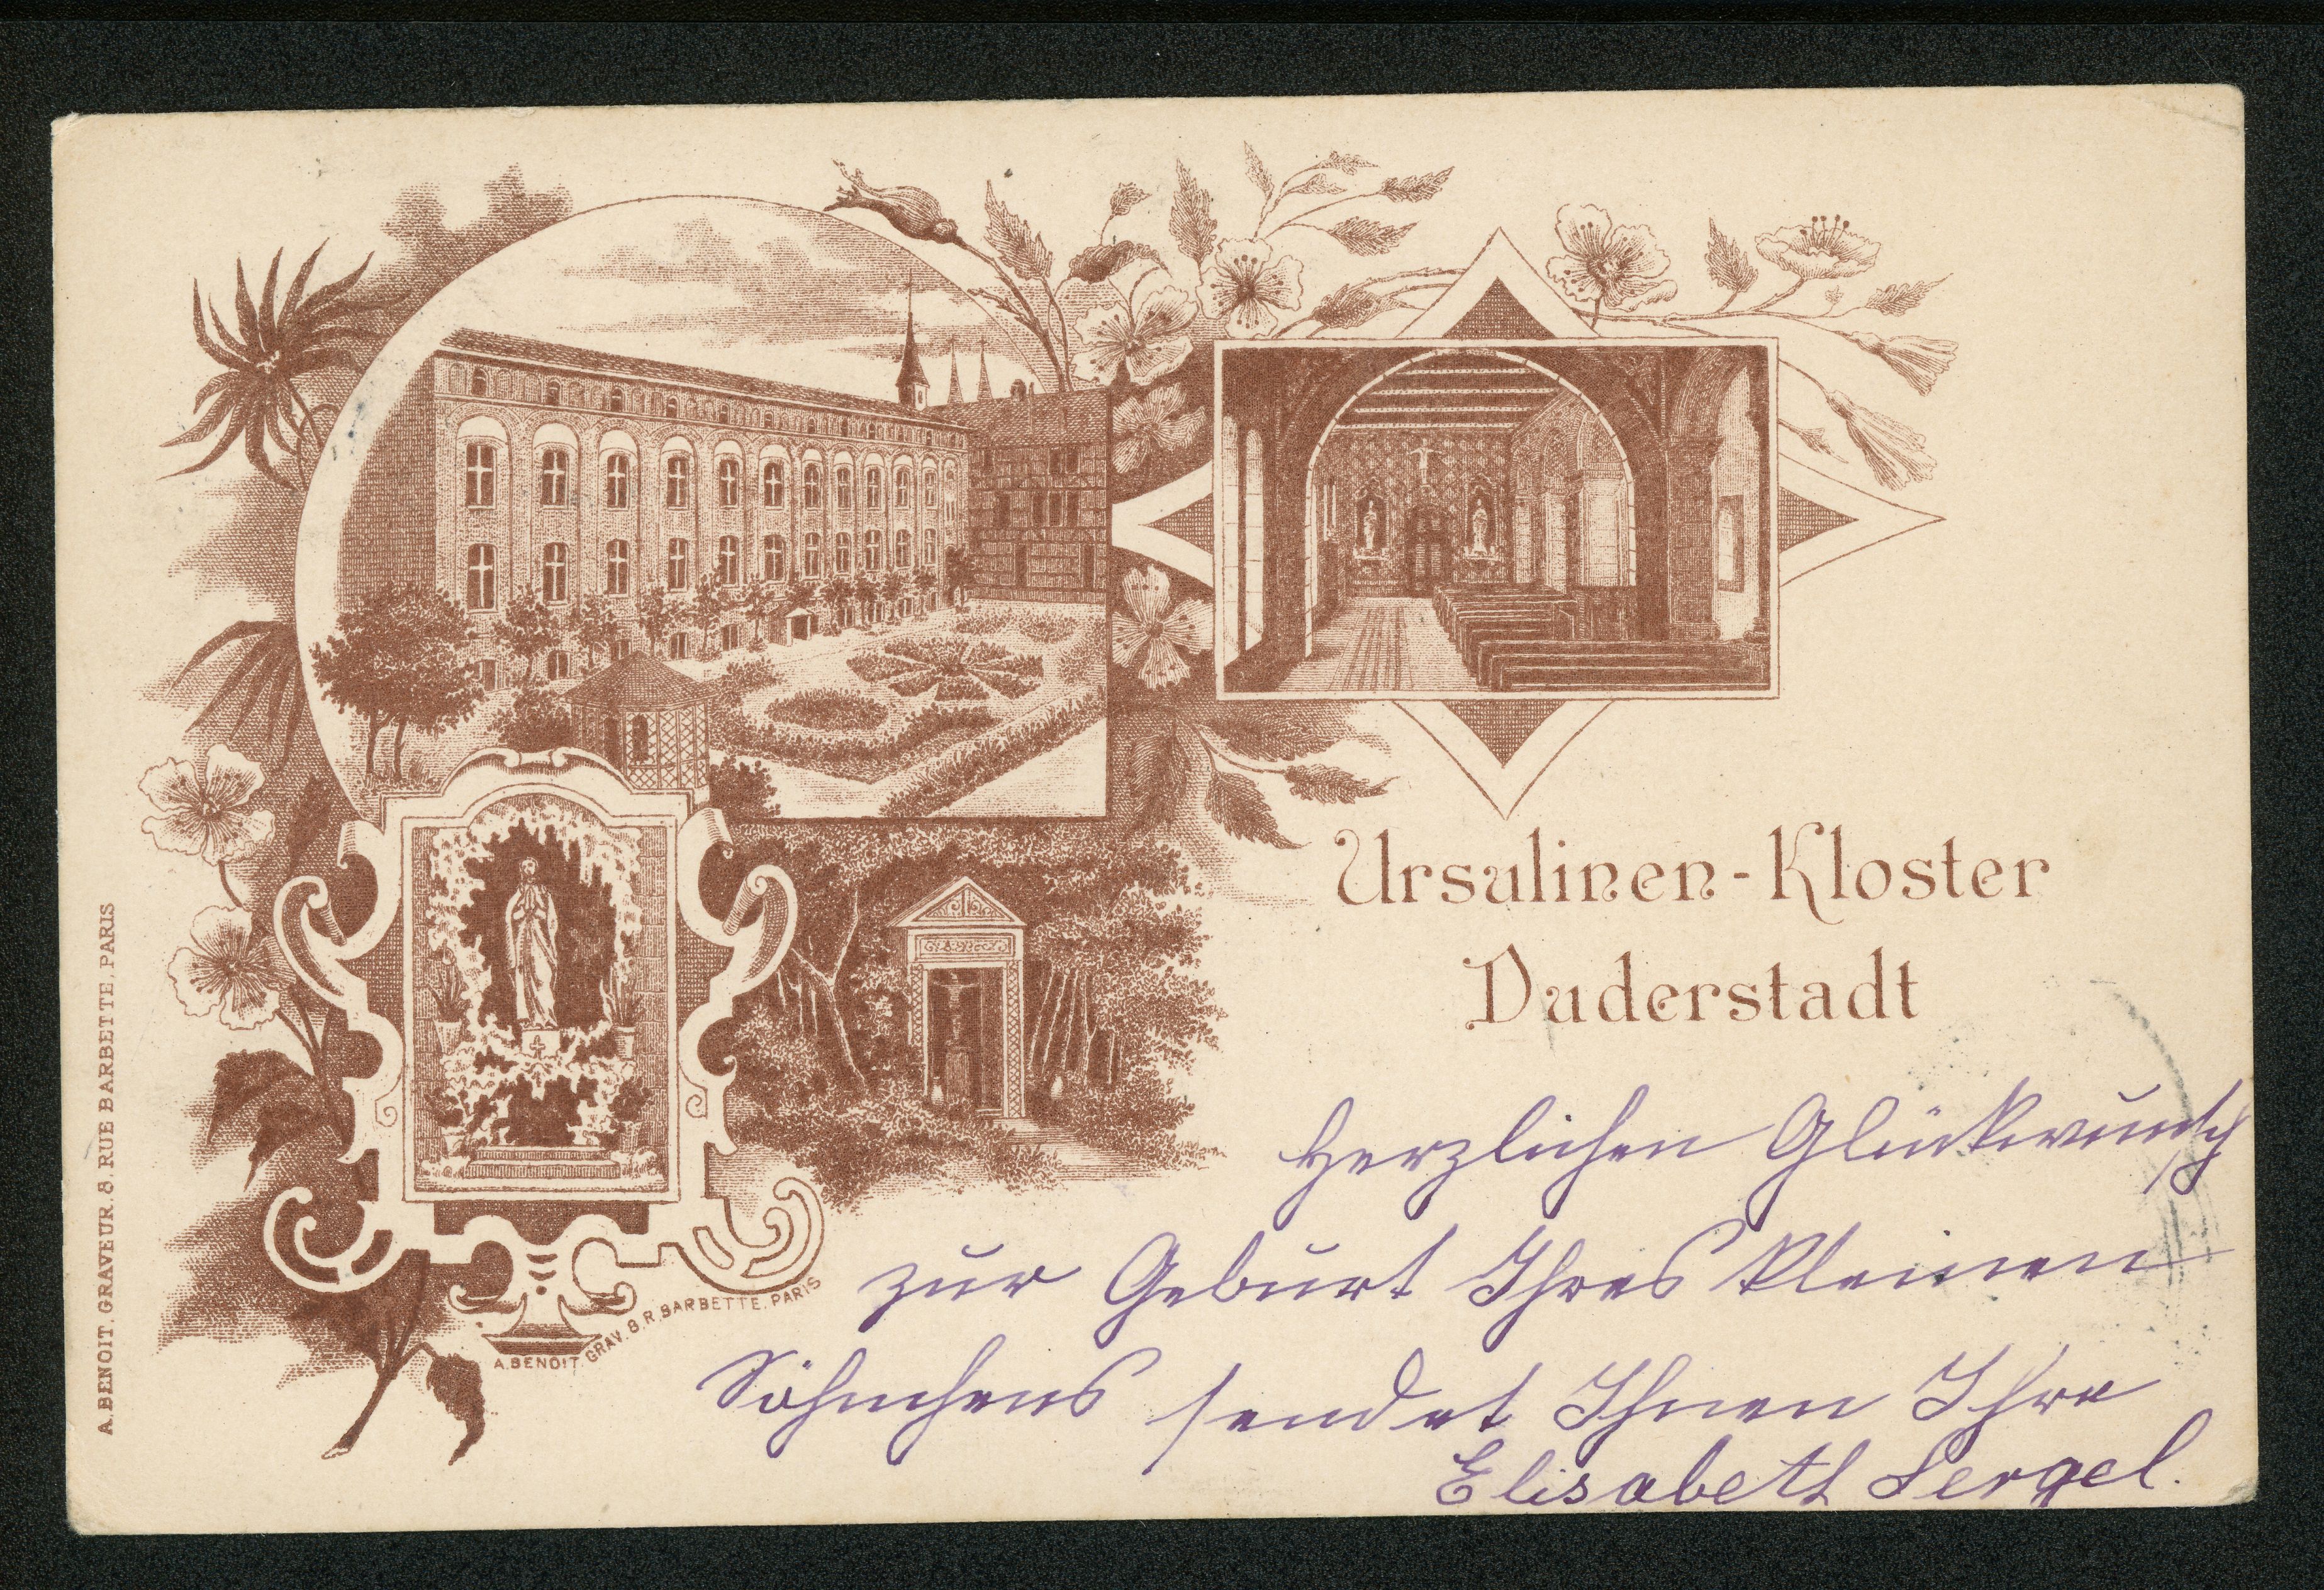 Ursulinen-Kloster
Duderstadt
Herzlichen Glückwunsch
zur Geburt Ihres kleinen
Söhnchens sendet Ihnen Ihre
Elisabeth Sergel.
A. BENOIT. GRAV. 8. R. BARBETTE. PARIS
A. BENOIT. GRAVEUR. 8. RUE BARBETTE, PARIS